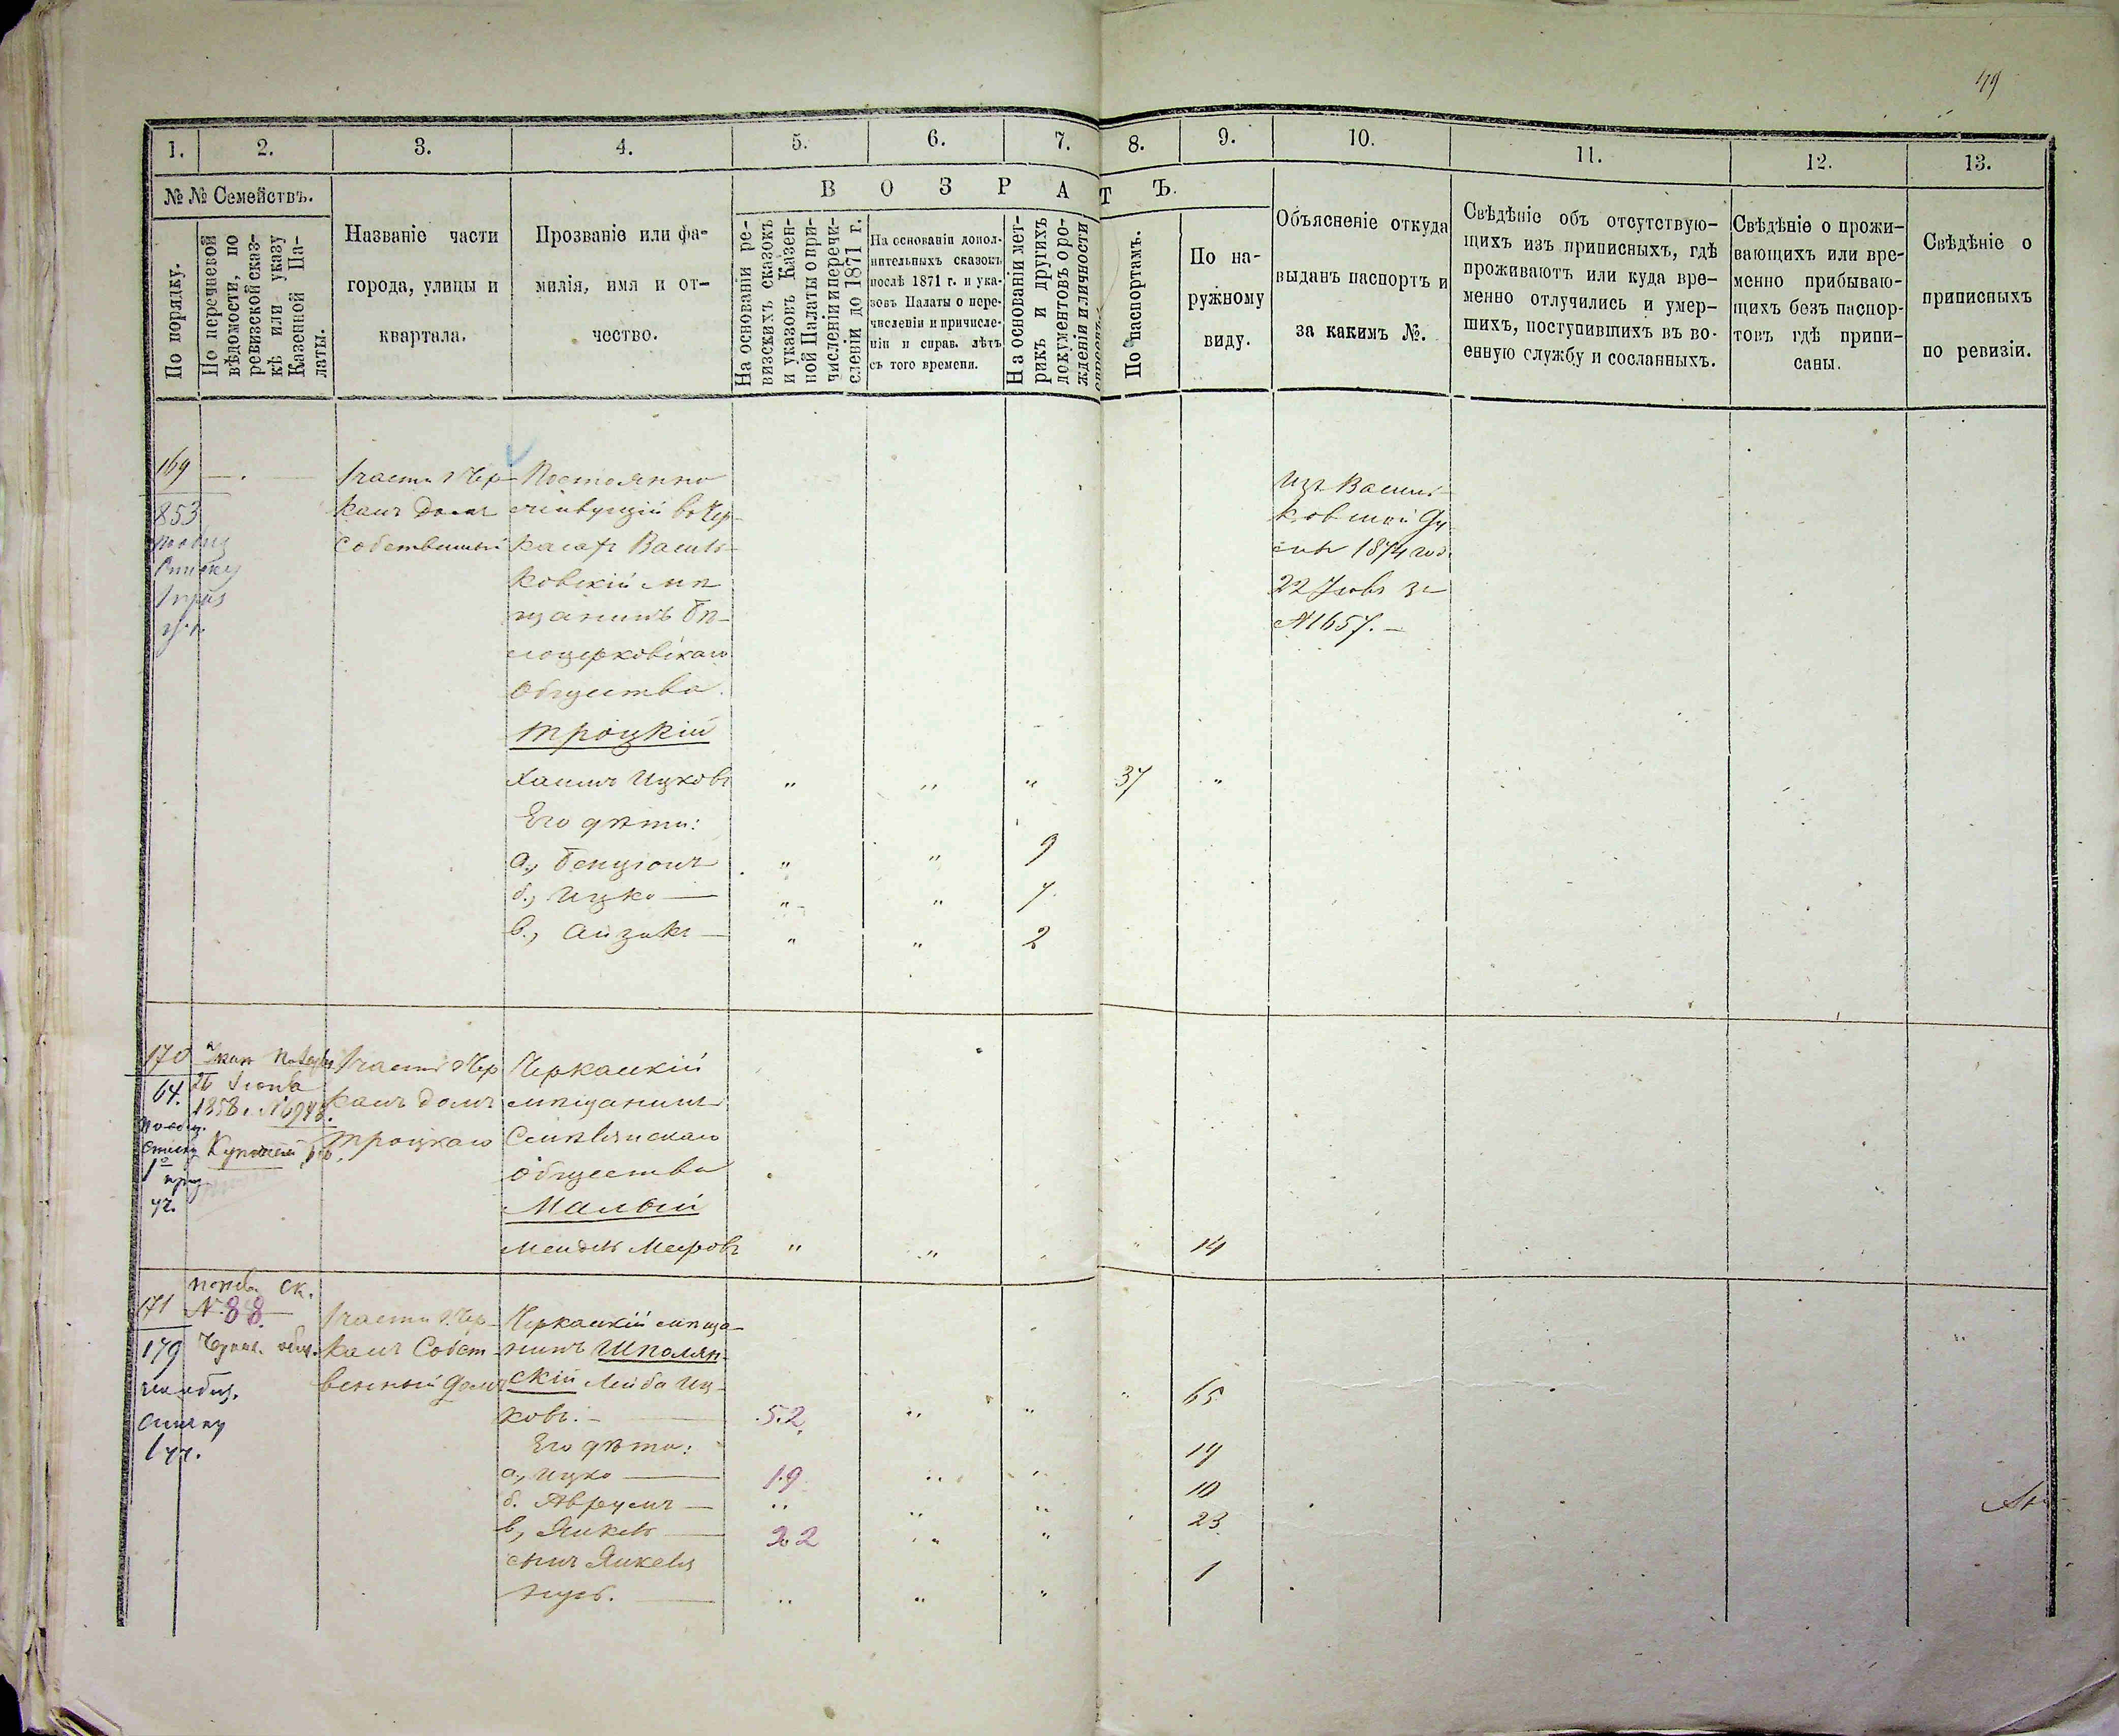 49
1. 2. 3. 4. 5. 6. 7. 8. 9. 10. 11. 12. 13.
№ № Семействъ.
По порядку.
По перечневой
вѣдомости, по
ревизской сказ-
кѣ или указу
Казенной Па-
латы.
Названіе части
города, улицы и
квартала.
Прозваніе или фа-
милія, имя и от-
чество.
ВОЗРАСТЪ.
На основаніи ре-
визскихъ сказокъ
и указовъ Казен-
ной Палаты о при-
численіи и перечи-
сленіи до 1871 г.
На основаніи допол-
нительныхъ сказокъ
послѣ 1871 г. и ука-
зовъ Палаты о пере-
численіи и причисле-
ніи и справ. лѣтъ
съ того времени.
На основаніи мет-
рикъ и другихъ
документовъ о ро-
жденіи и личности
По паспортамъ.
По на-
ружному
виду.
Объясненіе откуда
выданъ паспортъ и
за какимъ №.
Свѣдѣніе объ отсутствую-
щихъ изъ приписныхъ, гдѣ
проживаютъ или куда вре-
менно отлучились и умер-
шихъ, поступившихъ въ во-
енную службу и сосланныхъ.
Свѣдѣніе о прожи-
вающихъ или вре-
менно прибываю-
щихъ безъ паспор-
товъ гдѣ припи-
саны.
Свѣдѣніе о
приписныхъ
по ревизіи.
169
853
1 части г Чер-
касъ домъ
собственный
Постоянно
живущій въ Чер-
касахъ Василь-
ковскій мѣ
щанинъ Бѣ-
лоцерковскаго
Общества
Троцкій
Хаимъ Ицковъ " " " 37 "
Его дѣти:
а., Бенціонъ " " 9
б., Ицко — " " 7
в., Айзикъ — " " 2
Изъ Василь-
ковской Ду
мы 1874 год.
22 Генв. за
№ 1657. —
170
64.
1858 г.
1 части г Чер
касъ домъ
Троцкаго
Черкаскій
мѣщанинъ
Смѣлянскаго
Общества
Малый
Мендель Мееровъ " " 14
171 № 88
179
по общ.
списку
1 уч.
1 части г. Чер-
касъ Собст-
венный домъ
Черкаскій мѣща-
нинъ Шполян-
скій Лейба Иц-
ковъ. — 52 " " " 65
Его дѣти:
а., Ицко — 19 " " 19
б. Аврумъ — " " " 10
в, Янкель — 22 " " 23
сынъ Янкеля
Нусъ. — " " " 1